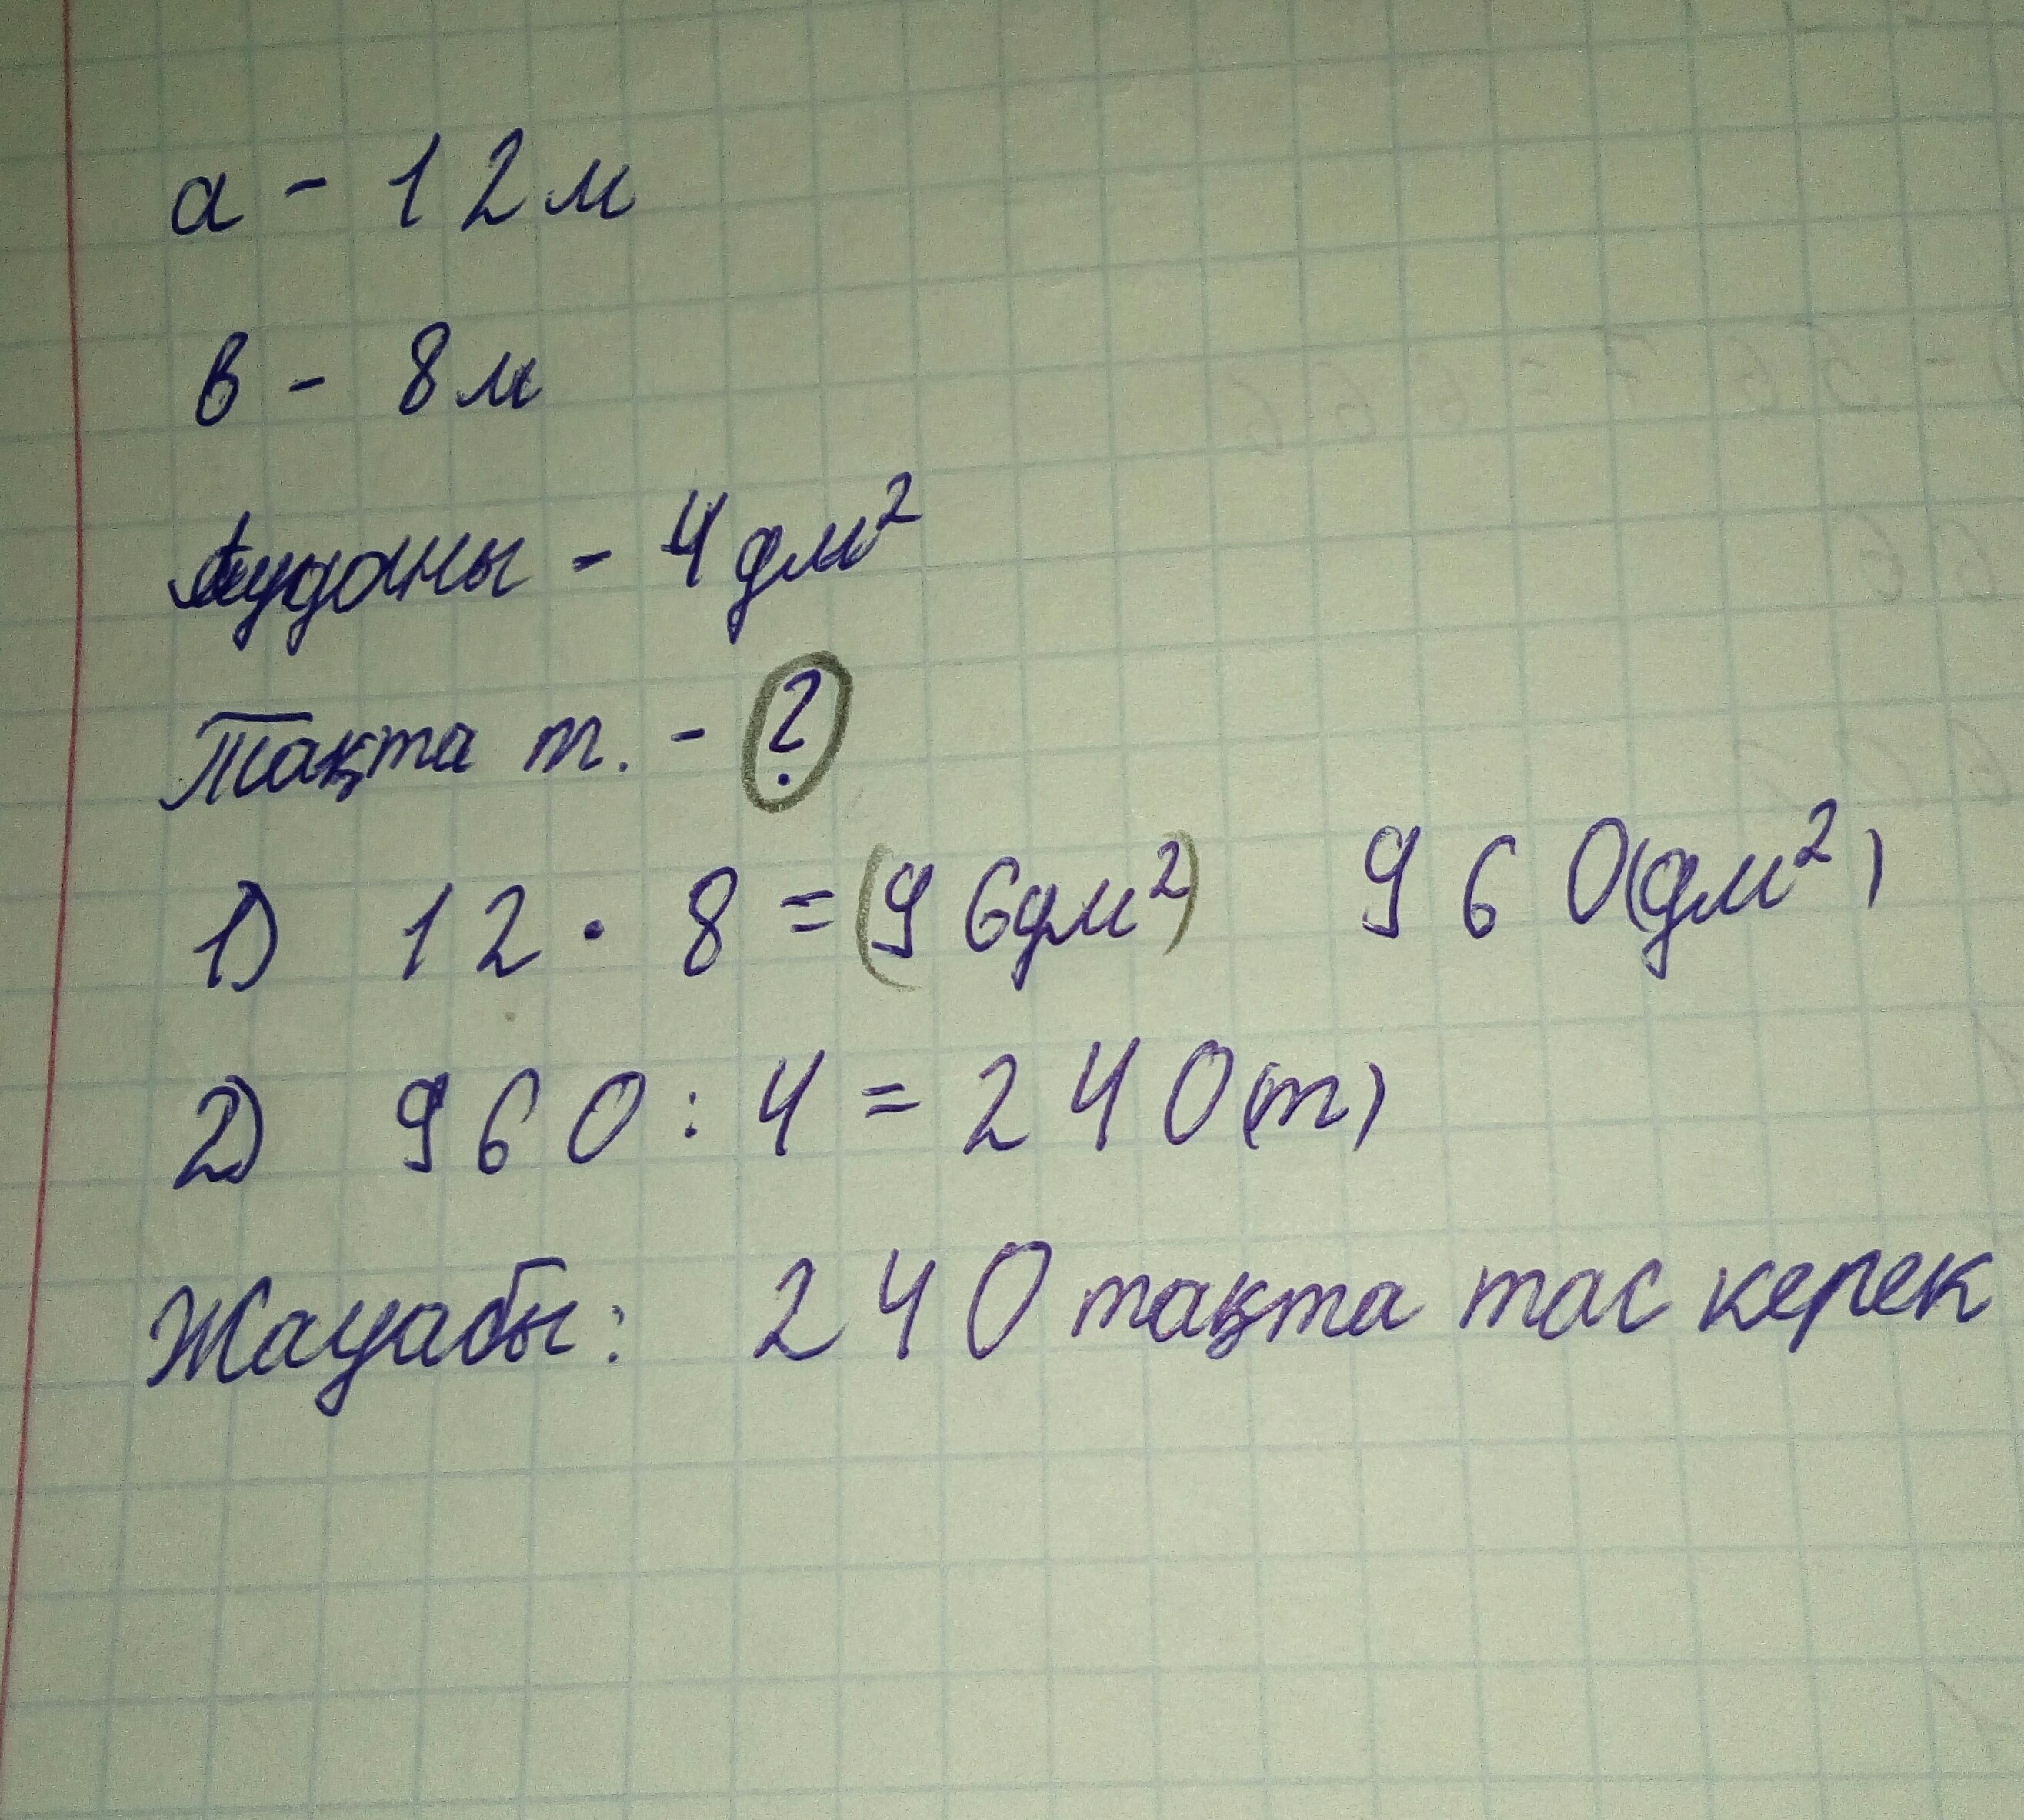 а - 12м
в - 8м
Ауданы - 4дм²
Тақта т. - ?
1) 12 · 8 = (96дм²) 960(дм²)
2) 960 : 4 = 240(т)
Жауабы: 240 тақта тас керек